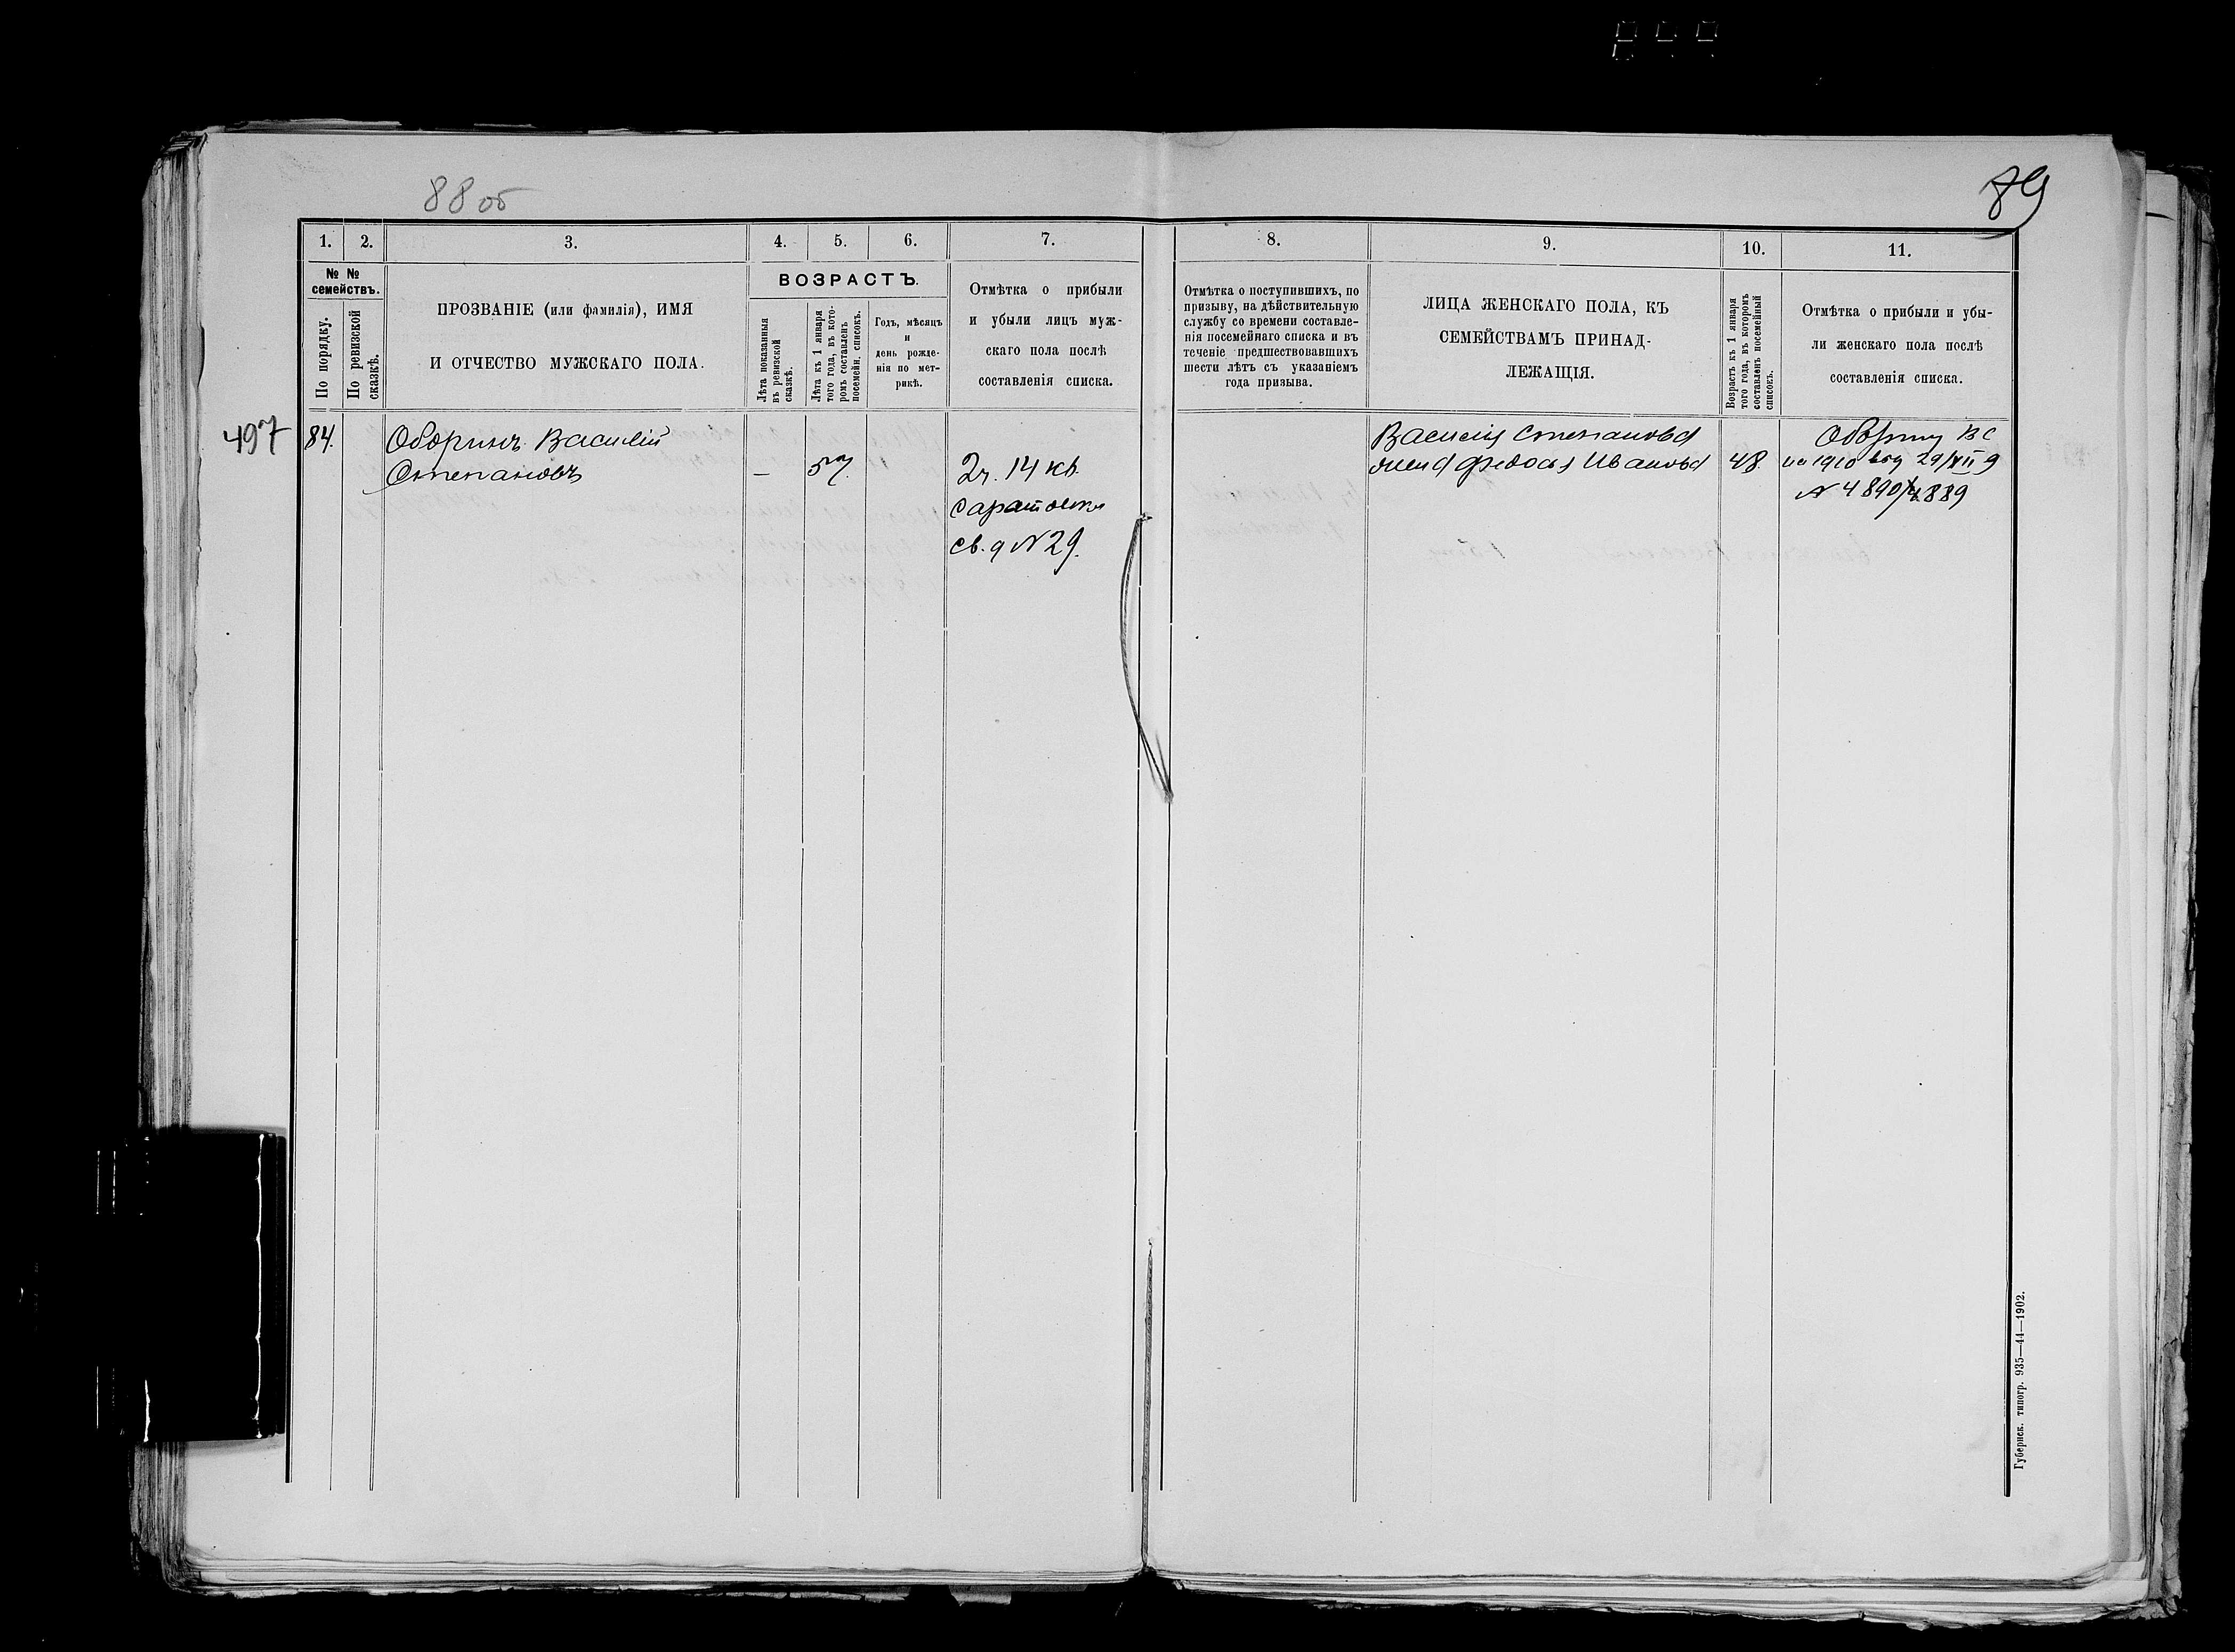 88 об
89
1.
2.
3.
4.
5.
6.
7.
8.
9.
10.
11.
№ №
семействъ.
По порядку.
По ревизской
сказкѣ.
ПРОЗВАНІЕ (или фамилія), ИМЯ
И ОТЧЕСТВО МУЖСКАГО ПОЛА.
ВОЗРАСТЪ.
Лѣта показанныя
въ ревизской
сказкѣ.
Лѣта къ 1 января
того года, въ кото-
ромъ составленъ
посемейн. списокъ.
Годъ, мѣсяцъ
и
день рожде-
нія по мет-
рикѣ.
Отмѣтка о прибыли
и убыли лицъ муж-
скаго пола послѣ
составленія списка.
Отмѣтка о поступившихъ, по
призыву, на дѣйствительную
службу со времени составле-
нія посемейнаго списка и въ
теченіе предшествовавшихъ
шести лѣтъ съ указаніемъ
года призыва.
ЛИЦА ЖЕНСКАГО ПОЛА, КЪ
СЕМЕЙСТВАМЪ ПРИНАД-
ЛЕЖАЩІЯ.
Возрастъ къ 1 января
того года, въ которомъ
составленъ посемейный
списокъ.
Отмѣтка о прибыли и убы-
ли женскаго пола послѣ
составленія списка.
497
84.
Оборинъ Василій
Степановъ
—
57.
2ч. 14 кв.
Саратовская
св. д №29.
Василія Степанова
жена Федосья Иванова
48.
Оборину ВС
на 1910 год 29/XII 9
№ 4890/4889
Губернск. типогр. 935—44—1902.